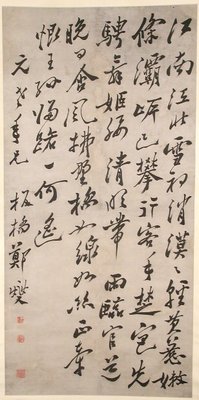 江南江北雪初消漠〻輕黃惹嫩
條灞岸已攀行客手楚宮先
騁舞姬腰清明帶雨臨官道
晚日含風拂野橋如線如絲正牽
恨王孫歸路一何遙
元年兄 板橋鄭燮